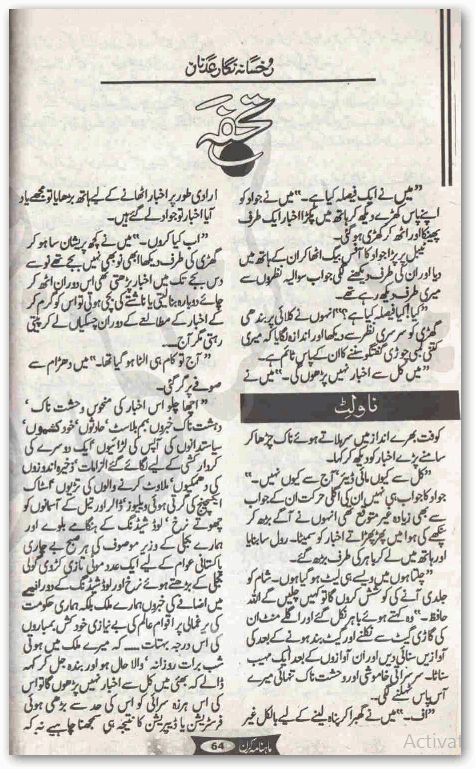 رخسانہ نگار عدنان
تحفہ
”میں نے ایک فیصلہ کیا ہے۔“ میں نے جواد کو
اپنے پاس کھڑے دیکھ کر ہاتھ میں پکڑا اخبار ایک طرف
پھینکا اور اٹھ کر کھڑی ہو گئی۔
ٹیبل پر پڑا جواد کا آفس بیگ اٹھا کر ان کے ہاتھ میں
دیا اور ان کی طرف دیکھنے لگی جو اب سوالیہ نظروں سے
میری طرف دیکھ رہے تھے۔
”کیا؟ کیا فیصلہ کیا ہے؟“ انہوں نے کلائی پر بندھی
گھڑی کو سرسری نظر سے دیکھا اور اندازہ لگایا کہ میری
کتنی لمبی چوڑی گفتگو سننے کا ان کے پاس ٹائم ہے۔
”میں کل سے اخبار نہیں پڑھوں گی۔“ میں نے
ناولٹ
کوفت بھرے انداز میں سر ہلاتے ہوئے ناک چڑھا کر
سامنے پڑے اخبار کو دیکھ کر کہا۔
”کل سے کیوں مائی ڈیئر آج سے کیوں نہیں۔“
جواد کا جواب ہی نہیں ان کی اگلی حرکت ان کے جواب
سے بھی زیادہ غیر متوقع تھی انہوں نے آگے بڑھ کر
پنکھے کی ہوا میں پھڑپھڑاتے اخبار کو سمیٹا۔ رول سا بنایا
اور ہاتھ میں لے کر باہر کی طرف بڑھ گئے۔
”چلتا ہوں میں ویسے ہی لیٹ ہو گیا ہوں۔ شام کو
جلدی آنے کی کوشش کروں گا تو کہیں چلیں گے اللہ
حافظ۔“ وہ کہتے ہوئے باہر نکل گئے اور اگلے منٹ ان
کی گاڑی گیٹ سے نکلنے اور گیٹ بند ہونے کے بعد کی
آوازیں سنائی دیں اور ان آوازوں کے بعد ایک مہیب
سناٹا۔ سرسراتی خاموشی اور وحشت ناک تنہائی میرے
آس پاس ٹہلنے لگی۔
”اف۔“ میں نے گھبرا کر پناہ لینے کے لیے بالکل غیر
ارادی طور پر اخبار اٹھانے کے لیے ہاتھ بڑھایا تو مجھے یاد
آیا اخبار تو جواد لے گئے ہیں۔
”اب کیا کروں۔“ میں نے کچھ پریشان سا ہو کر
گھڑی کی طرف دیکھا ابھی نو بھی نہیں بجے تھے نو سے
دس بجے تک میں اخبار پڑھتی تھی اس دوران اٹھ کر
چائے دوبارہ بنا لیتی یا ناشتے کی بچی ہوئی تو اس کو گرم کر
کے اخبار کے مطالعے کے دوران چسکیاں لے کر پیتی
رہتی مگر آج۔
”آج تو کام ہی الٹا ہو گیا تھا۔“ میں دھڑام سے
صوفے پر گر گئی۔
”اچھا چلو اس اخبار کی منحوس وحشت ناک‘
دہشت ناک خبروں‘ بم بلاسٹ‘ حادثوں‘ خودکشیوں‘
سیاستدانوں کی آپس کی لڑائیوں‘ ایک دوسرے کی
کردار کشی کے لیے لگائے گئے الزامات‘ ذخیرہ اندوزوں
کی دھمکیوں‘ ملاوٹ کرنے والوں کی تڑیوں‘ اسٹاک
ایکسچینج کی گرتی ہوئی ویلیوز‘ ڈالر اور تیل کے آسمانوں کو
چھوتے نرخ‘ لوڈ شیڈنگ کے ہنگامے بلوے اور
ہمارے بجلی کے وزیر موصوف کی ہر صبح بے چاری
پاکستانی عوام کے لیے ایک عدد موٹی تازی کڑوی گولی
بجلی کے بڑھتے ہوئے نرخ اور لوڈ شیڈنگ کے دورانیے
میں اضافے کی خبروں ہمارے ملک بلکہ ہماری حکومت
کی یرغمالی پر اقوام عالم کی بے نیازی خود کش بمباروں
کی اس درجہ بہتات ۔۔۔ کہ میرے ملک میں ہوتی
شب برات روزانہ‘ والا حال ہو اور بندہ جل کر کہہ
ڈالے کہ بھئی میں کل سے اخبار نہیں پڑھوں گا تو اس
کی اس ہرزہ سرائی کو اس کی حد سے بڑھی ہوئی
فرسٹریشن یا ڈیپریشن کا نتیجہ ہی سمجھنا چاہیے نہ کہ
ماہنامہ کرن 64
Activat